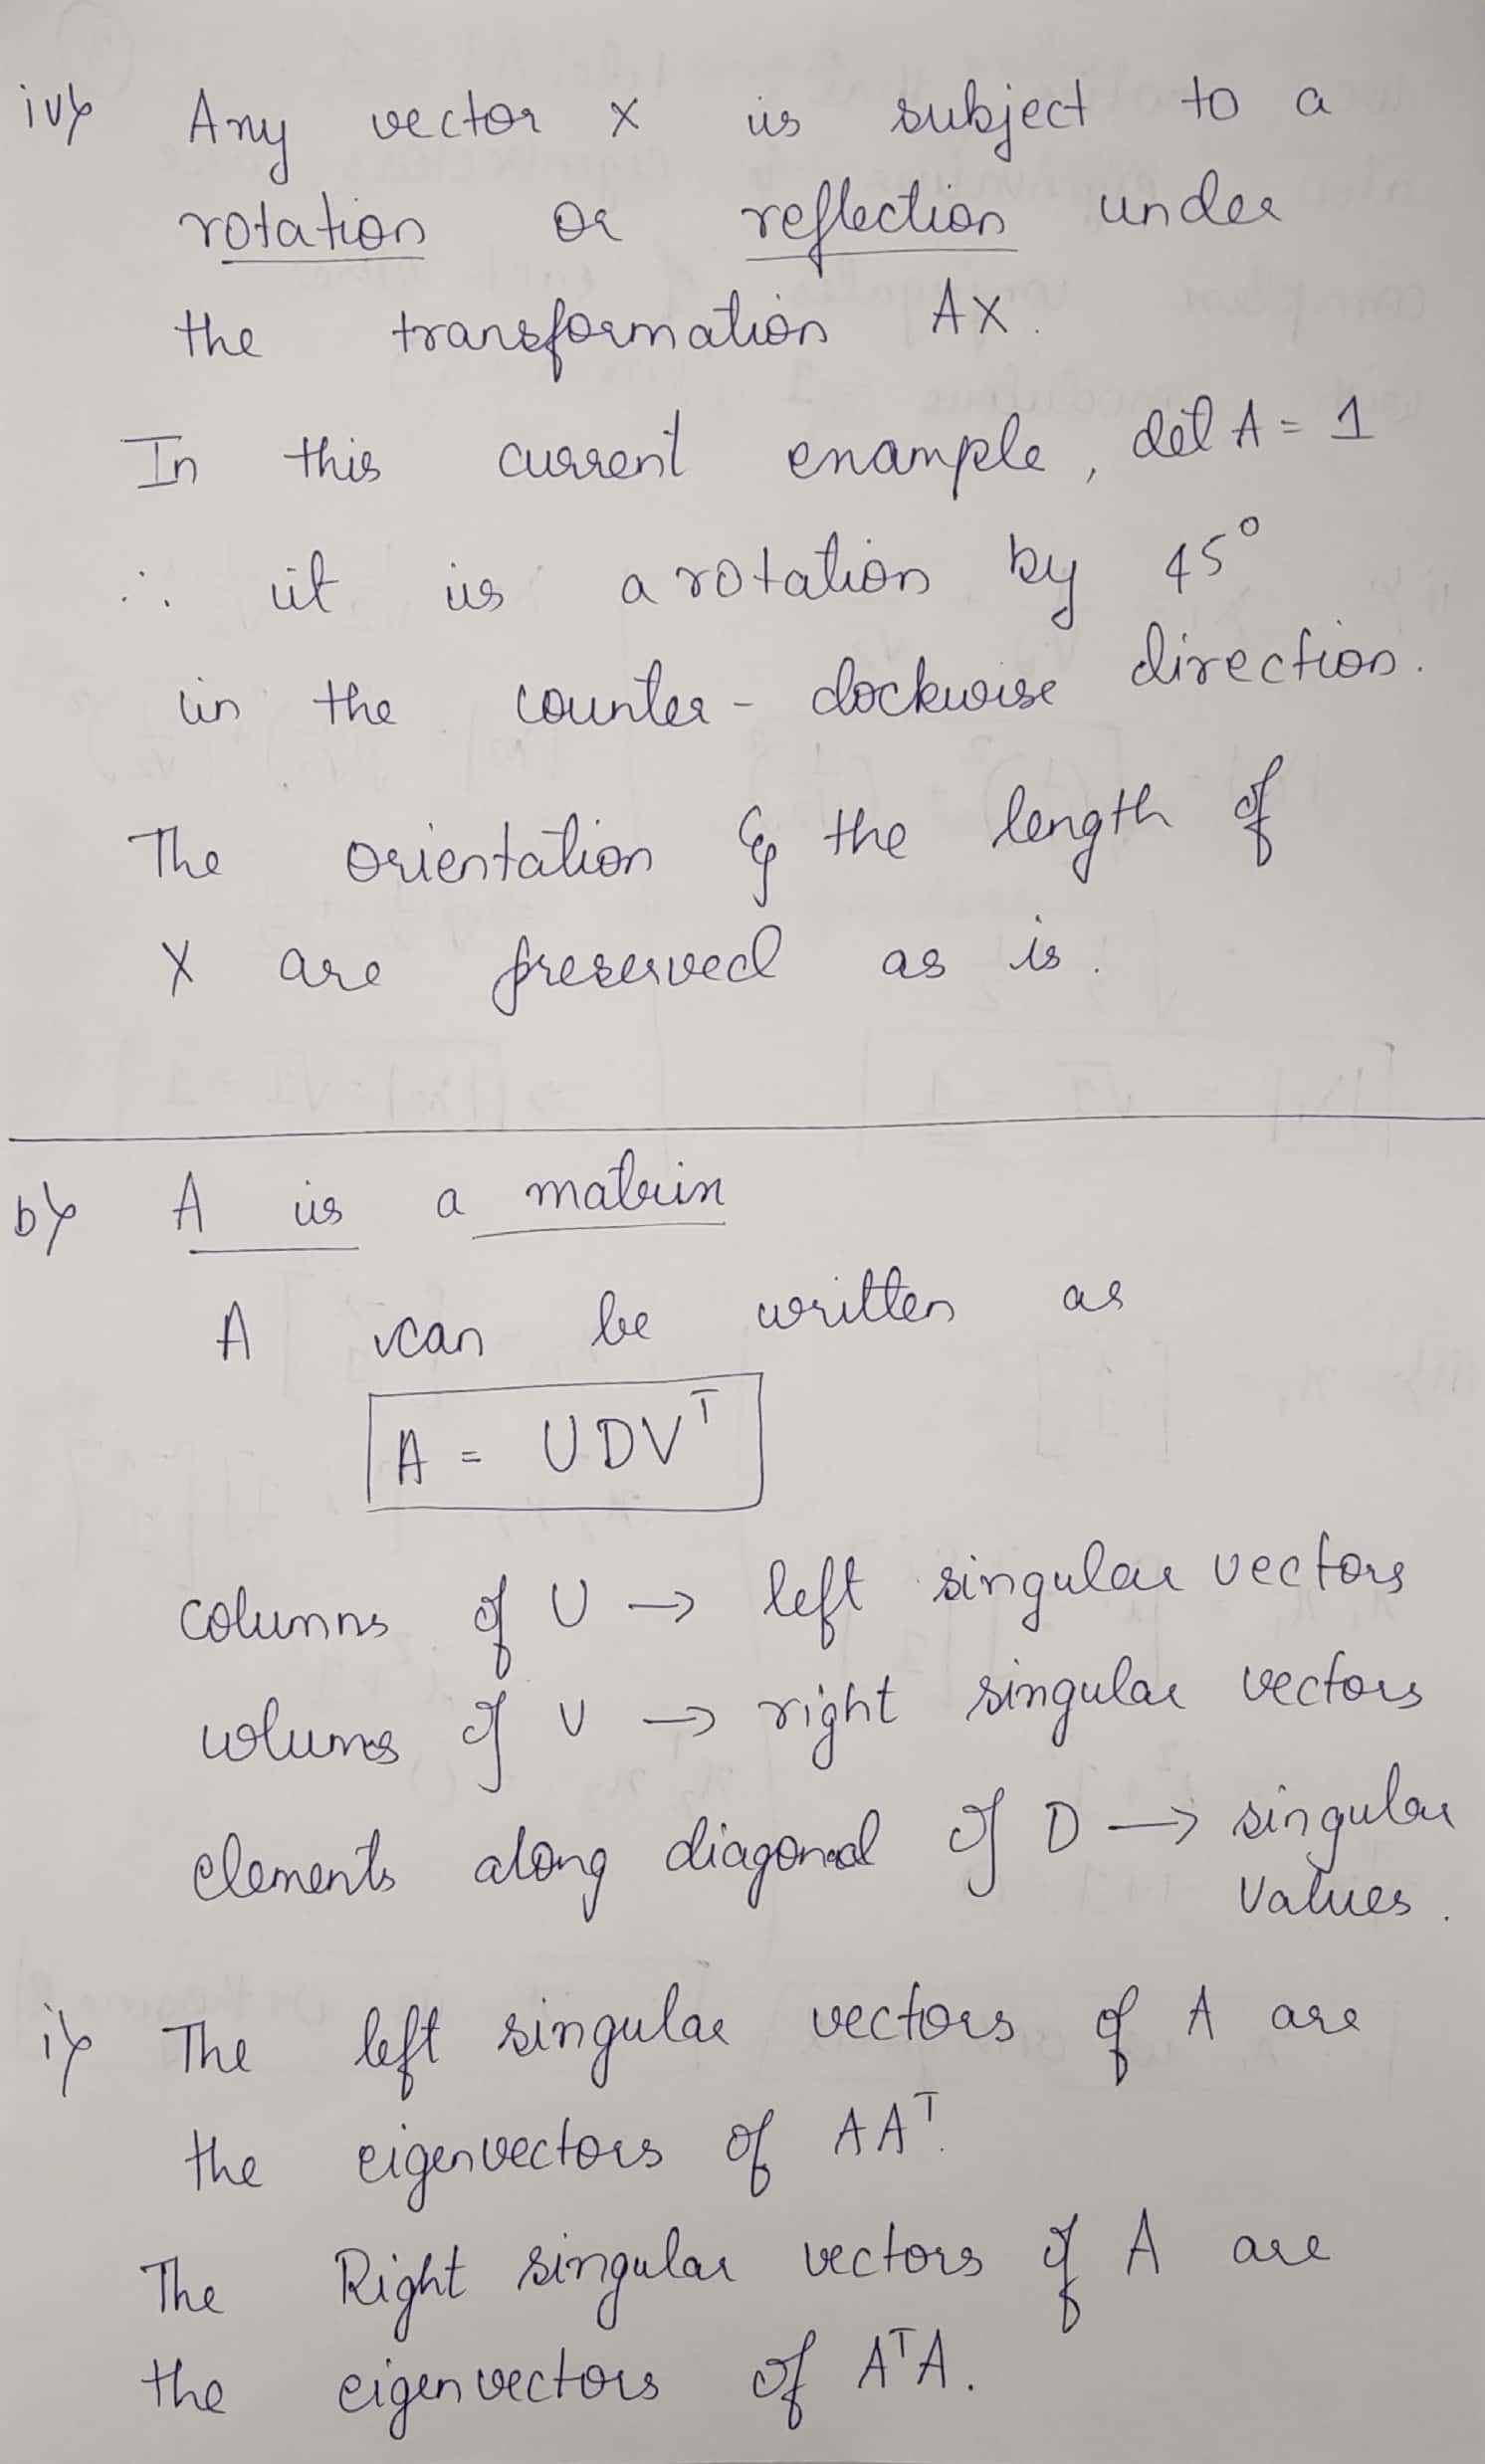 iv) Any vector x is subject to a
rotation or reflection under
the transformation Ax.
In this current example, det A = 1
∴ it is a rotation by 45°
in the counter-clockwise direction.
The orientation & the length of
x are preserved as is.
b) A is a matrix
A can be written as
A = UDVᵀ
columns of U → left singular vectors
columns of V → right singular vectors
elements along diagonal of D → singular
values.
i) The left singular vectors of A are
the eigenvectors of AAᵀ.
The Right singular vectors of A are
the eigenvectors of AᵀA.